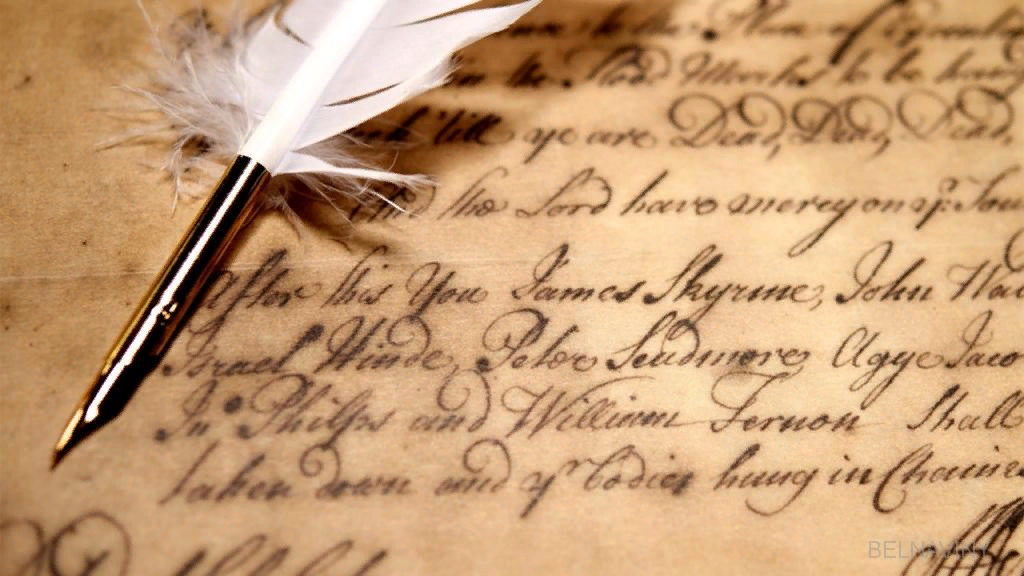 to be hang
'till ye are Dead, Dead, Dead,
And the Lord have mercy on yr. Sou
After this You James Skyrme, John Wa
Israel Hinde, Peter Scudmore Agge Jaco
Jnr. Philps and William Fernon Shall
taken down and yr bodies hung in Chaine
BELNAVINY